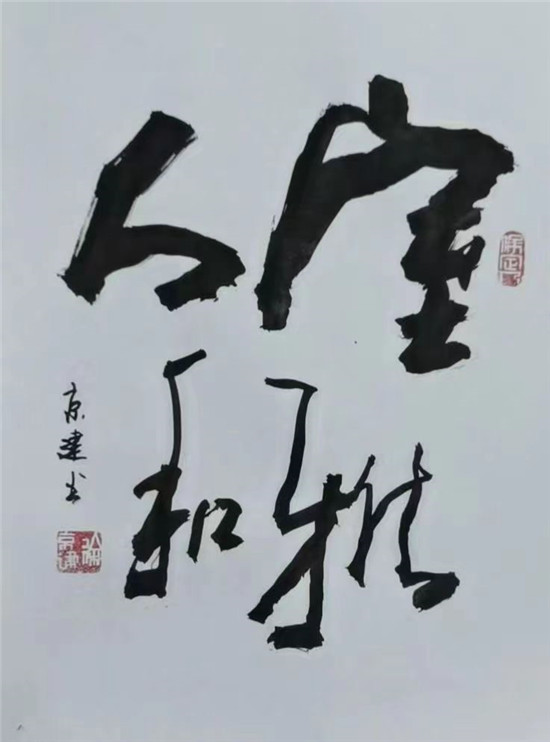 室雅
人和
京建书